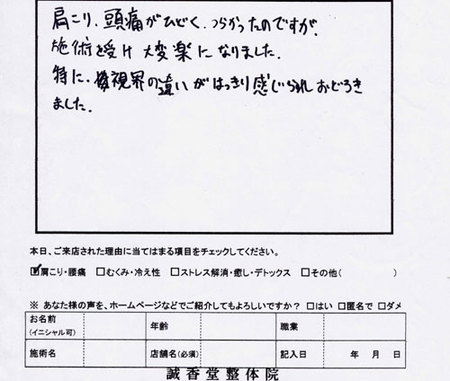 肩こり、頭痛がひどく、つらかったのですが、
施術を受け大変楽になりました。
特に、視界の違いがはっきり感じられおどろき
ました。
本日、ご来店された理由に当てはまる項目をチェックしてください。
☑肩こり・腰痛 □むくみ・冷え性 □ストレス解消・癒し・デトックス □その他( )
※ あなた様の声を、ホームページなどでご紹介してもよろしいですか？ □はい □匿名で □ダメ
お名前 年齢 職業
(イニシャル可)
施術名 店舗名(必須) 記入日 年 月 日
誠香堂整体院